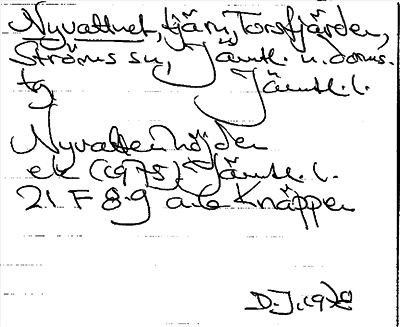 Nyvattnet, tjärn, Torsfjärden,
Ströms sn, Jämtl. n. doms.
tg Jämtl. l.
Nyvattenhöjden
ek (1975) Jämtl. l.
21 F 8-9 a-c Knäppen
D. J. 1978